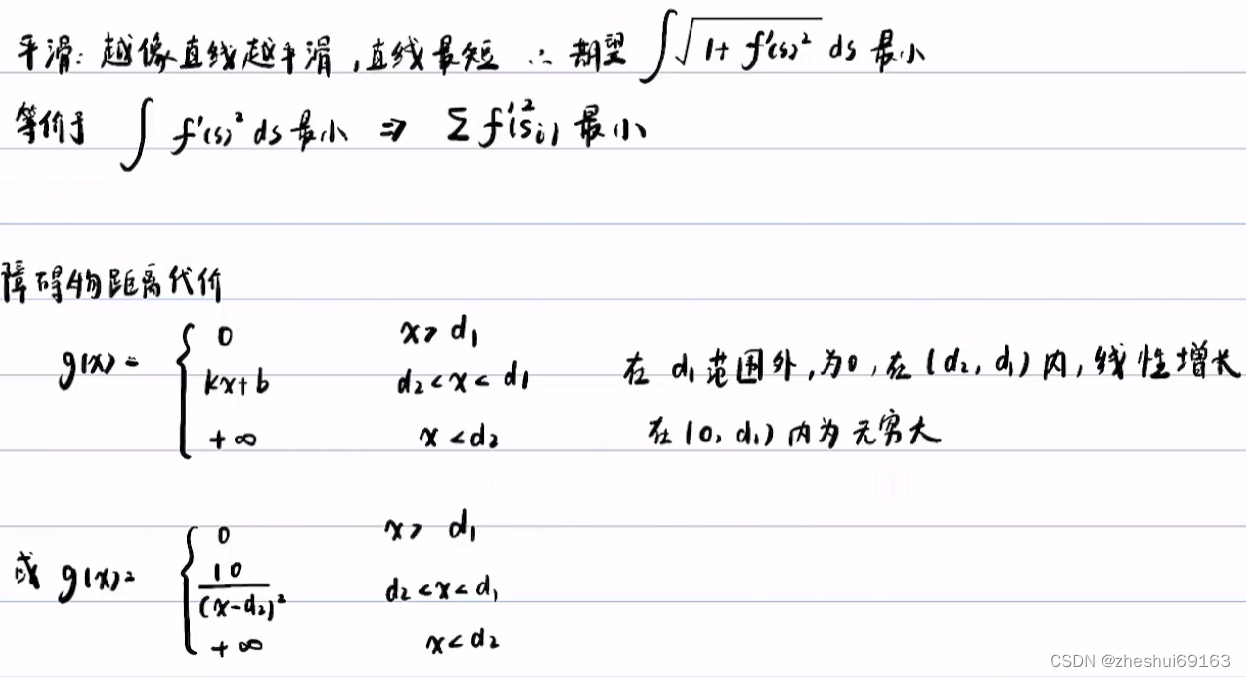 平滑：越像直线越平滑，直线最短 ∴ 期望 ∫√(1+f'(s)²) ds 最小
等价于 ∫ f'(s)² ds 最小 ⇒ Σ f'²(sᵢ) 最小
障碍物距离代价
g(x) = { 0 x > d₁
kx+b d₂ < x < d₁ 在 d₁ 范围外，为0，在 (d₂, d₁) 内，线性增长
+∞ x < d₂ 在 (0, d₁) 内为无穷大
或 g(x) = { 0 x > d₁
10/(x-d₂)² d₂ < x < d₁
+∞ x < d₂
CSDN @zheshui69163